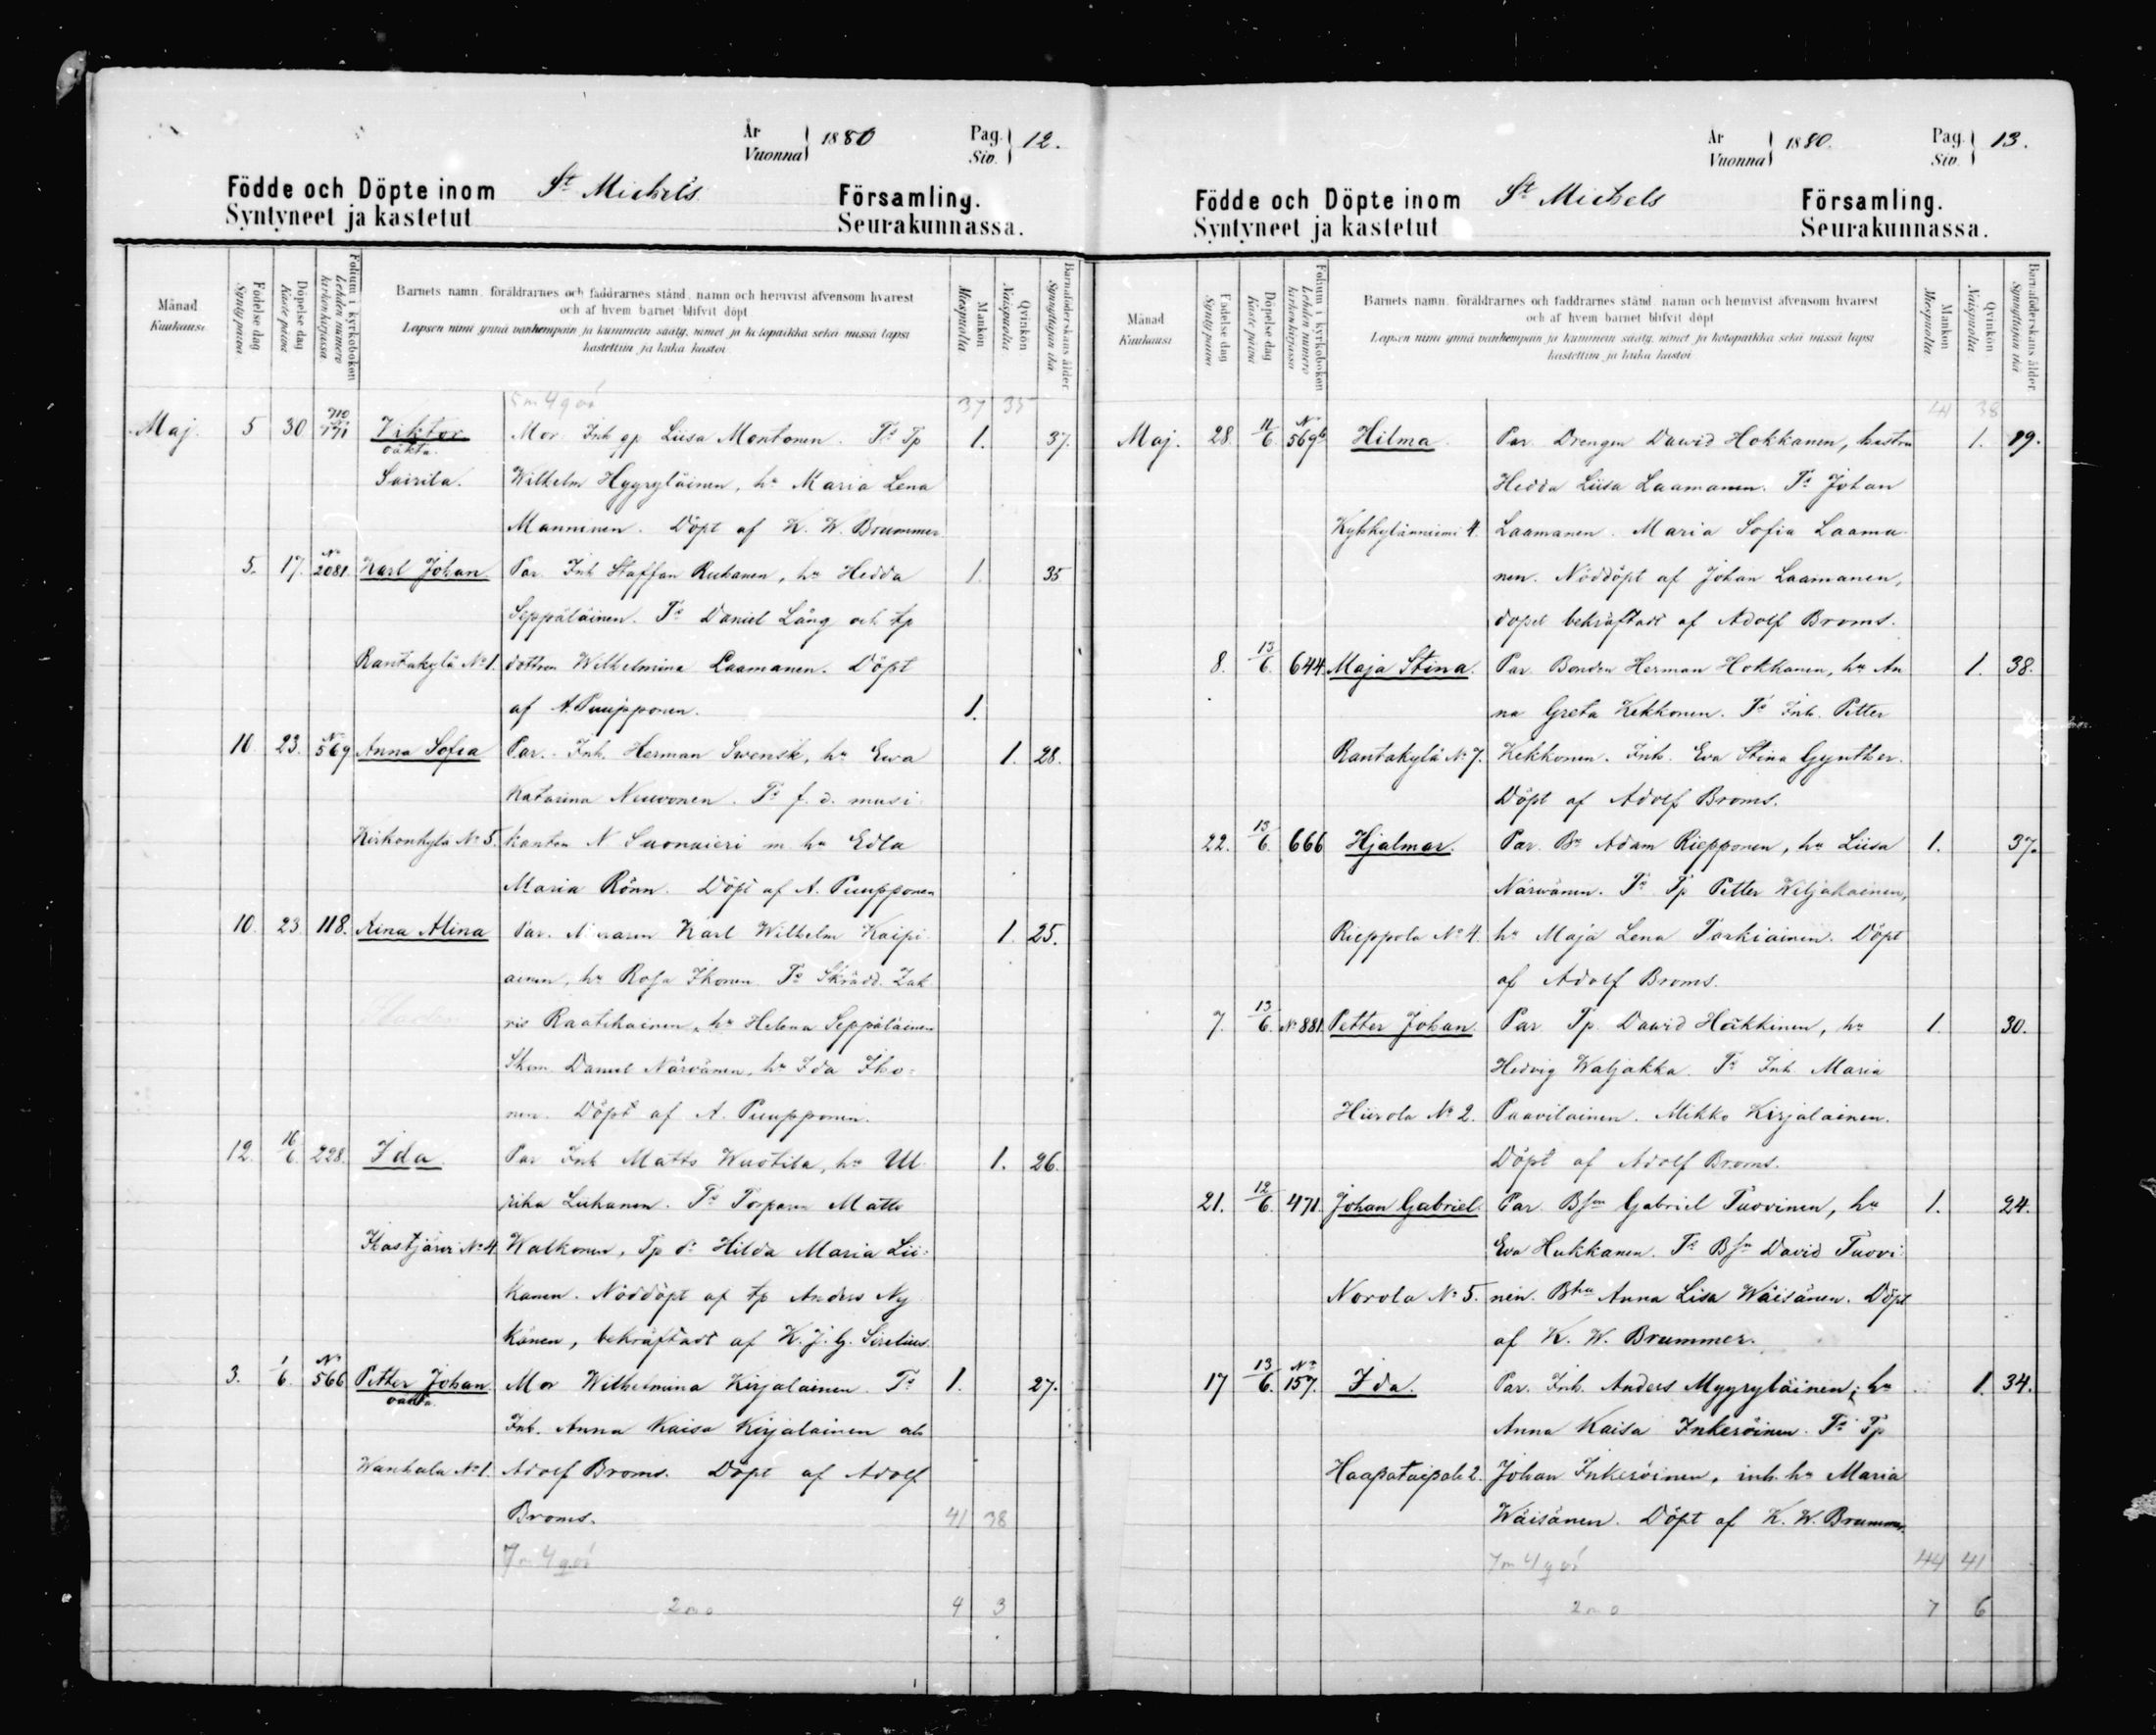 År
Vuonna 1880 Pag.
Siv. 12.
Födde och Döpte inom St Michels Församling.
Syntyneet ja kastetut Seurakunnassa.
Månad
Kuukausi
Födelse dag
Synty päivä
Döpelse dag
Kaste päivä
Folium i kyrkoboken
Lehden numero kirkonkirjassa
Barnets namn, föräldrarnes och faddrarnes stånd, namn och hemvist äfvensom hvarest
och af hvem barnet blifvit döpt
Lapsen nimi ynnä vanhempain ja kummein sääty, nimet ja kotopaikka sekä missä lapsi
kastettiin ja kuka kastoi
Mankön
Miespuolia
Qvinkön
Naispuolia
Barnaföderskans ålder
Synnyttäjän ikä
37 35
Maj. 5 30 710 771 Viktor Mor Inh gp Liisa Montonen. Fs Tp 1. 37.
oäkta.
Sairila. Wilhelm Hyyryläinen, hu Maria Lena
Manninen. Döpt af K. W. Brummer
5. 17. No 2081 Karl Johan Par. Inh Staffan Ruhanen, hu Hedda 1. 35
Seppäläinen. Fs Daniel Lång och tp
Rantakylä No 1. dottren Wilhelmina Laamanen. Döpt
af A. Puupponen. 1.
10. 23. No 569 Anna Sofia Par. Inh. Herman Swensk, hu Ewa 1. 28.
Katarina Nuuvonen. Fs f. d. musi
Kirkonkylä No 5. kanten N Suonvieri m. hu Edla
Maria Rönn. Döpt af A. Puupponen
10. 23 118. Aina Alina Par. Karl Wilhelm Kaipi 1. 25.
ainen, hu Rosa Ikonen. Fs Skrädd. Zak
ris Raatikainen, hu Helena Seppäläinen
Skom Daniel Närvänen, hu Ida Iko=
nen. Döpt af A. Puupponen.
12. 16/6 228. Ida Par Inh Matts Wuotila, hu Ul 1. 26.
rika Liikanen. Fs Torparen Matts
Ihastjärvi No 4 Walkonen, Tp dr Hilda Maria Lii=
kanen. Nöddöpt af tp Anders Ny
känen, bekräftadt af K. J. G. Sirelius.
3. 1/6. No 566 Petter Johan Mor Wilhelmina Kirjalainen. Fs 1. 27.
oäkta.
Inh. Anna Kaisa Kirjalainen och
Wanhala No 1. Adolf Broms. Döpt af Adolf
Broms. 41 38
4 3
År
Vuonna 1880. Pag.
Siv. 13.
Födde och Döpte inom St Michels Församling.
Syntyneet ja kastetut Seurakunnassa.
Månad
Kuukausi
Födelse dag
Synty päivä
Döpelse dag
Kaste päivä
Folium i kyrkoboken
Lehden numero kirkonkirjassa
Barnets namn, föräldrarnes och faddrarnes stånd, namn och hemvist äfvensom hvarest
och af hvem barnet blifvit döpt
Lapsen nimi ynnä vanhempain ja kummein sääty, nimet ja kotopaikka sekä missä lapsi
kastettiin ja kuka kastoi
Mankön
Miespuolia
Qvinkön
Naispuolia
Barnaföderskans ålder
Synnyttäjän ikä
41 38
Maj. 28. 11/6 No 569b Hilma. Par. Drengen Dawid Hokkanen, hustru 1. 19.
Hedda Liisa Laamanen. Fs Johan
Kyhkylänniemi 4. Laamanen. Maria Sofia Laama
nen. Nöddöpt af Johan Laamanen,
dopet bekräftadt af Adolf Broms.
8. 13/6. 644 Maja Stina. Par. Bonden Herman Hokkanen, hu An 1. 38.
na Greta Kekkonen. Fs Inh. Petter
Rantakylä No 7. Kekkonen. Inh. Eva Stina Gynther.
Döpt af Adolf Broms.
22. 13/6. 666 Hjalmar. Par. Bn Adam Riepponen, hu Liisa 1. 37.
Närvänen. Fs Tp Petter Wiljakainen,
Rieppola No 4. hu Maja Lena Tarkiainen. Döpt
af Adolf Broms.
7. 13/6. No 881. Petter Johan. Par Tp. Dawid Häkkinen, hu 1. 30.
Hedvig Waljakka. Fs Inh Maria
Hiirola No 2. Paavilainen. Mikko Kirjalainen.
Döpt af Adolf Broms.
21. 12/6. 471. Johan Gabriel. Par. Bson Gabriel Tuovinen, hu 1. 24.
Eva Hukkanen. Fs Bsn David Tuovi
Norola No 5. nen. Bhu Anna Lisa Wäisänen. Döpt
af K. W. Brummer.
17 13/6. No 157. Ida. Par. Inh. Anders Myyryläinen, hu 1. 34.
Anna Kaisa Inkeröinen. Fs Tp
Haapataipale 2. Johan Inkeröinen, inh. hu Maria
Wäisänen. Döpt af K. W. Brummer.
44 41
7 6